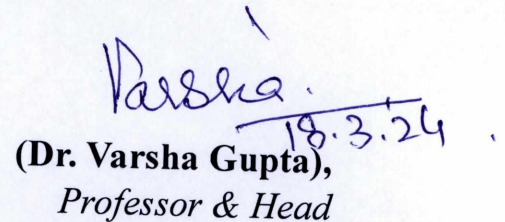 Varsha.
18.3.24.
(Dr. Varsha Gupta),
Professor & Head